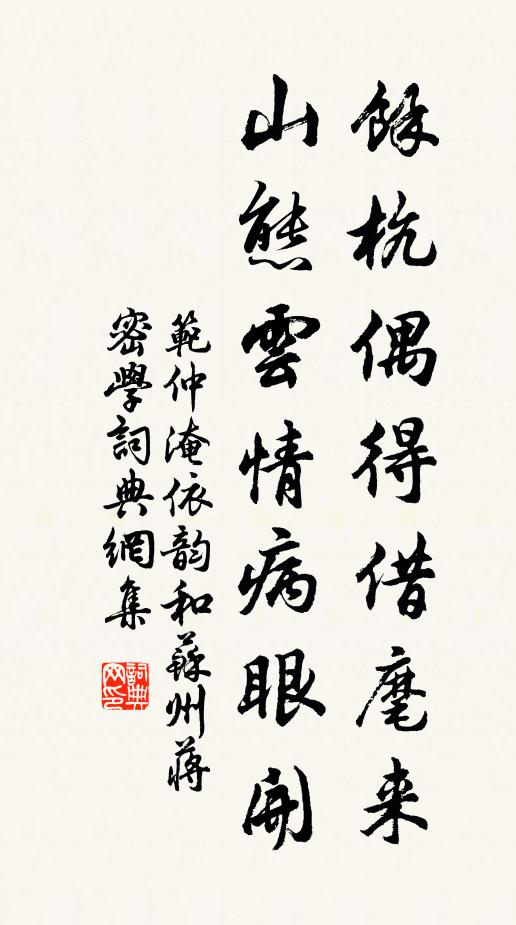 餘杭偶得借麾来
山態雲情病眼開
範仲淹依韵和蘇州蔣
密學詞典網集
詞典
网印